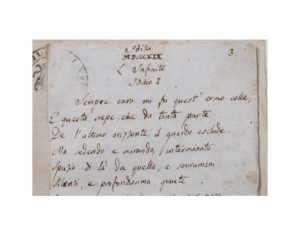 3
MDCCCXIX
L'Infinito
Idillio I
Sempre caro mi fu quest'ermo colle,
E questa siepe, che da tanta parte
De l'ultimo orizzonte il guardo esclude.
Ma sedendo e mirando, interminato
Spazio di là da quella, e sovrumani
Silenzi, e profondissima quiete